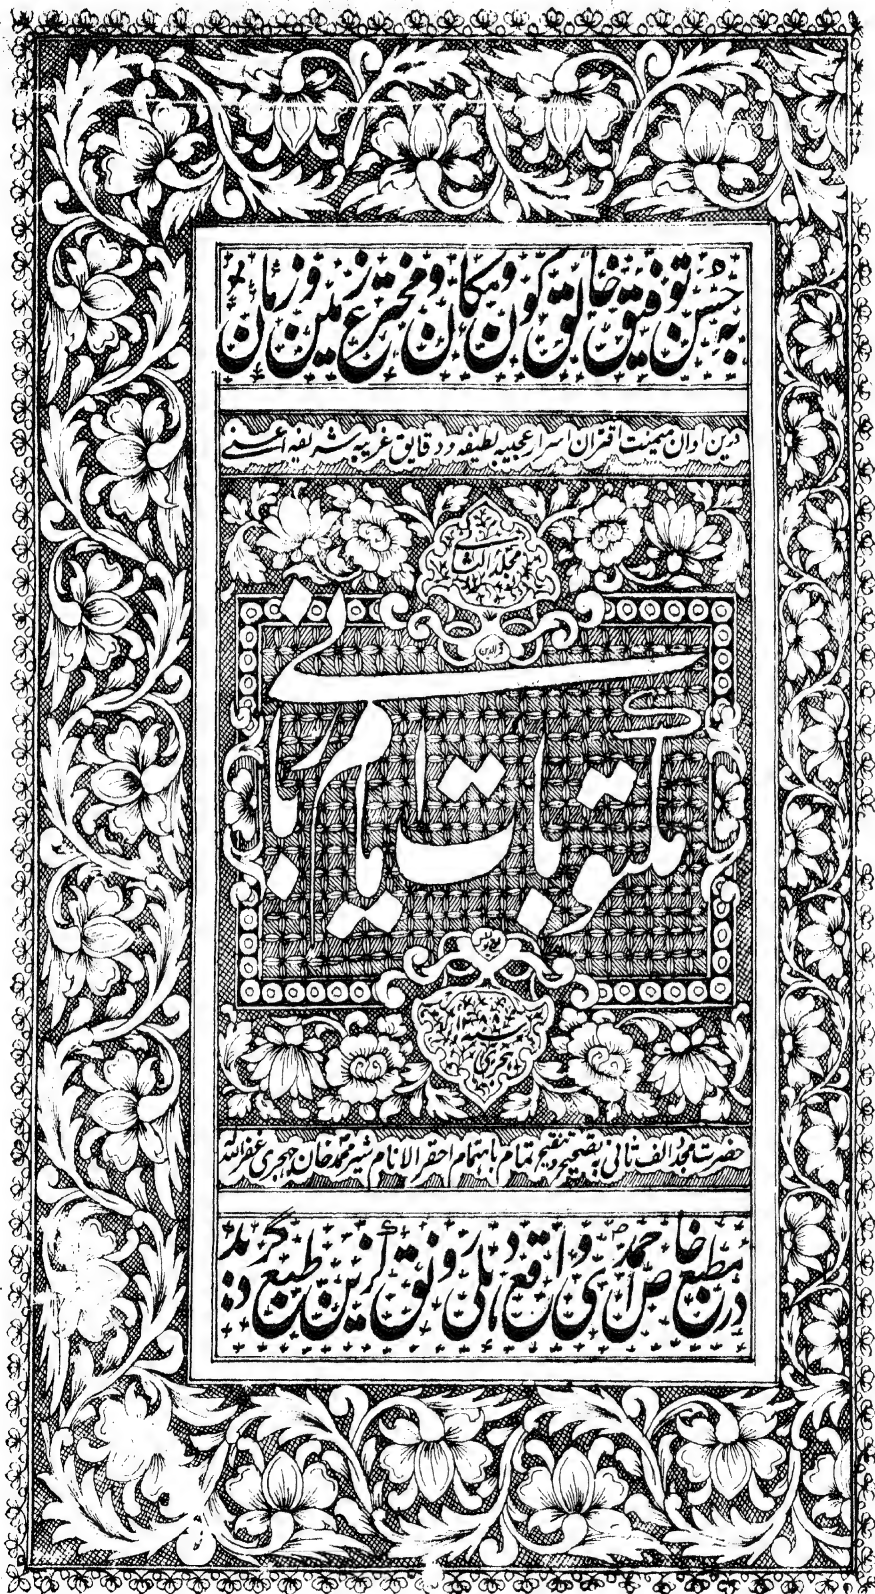 به حُسن توفیق خالق کون و مکان و مخترع زمین و زمان
درین اوان میمنت اقتران اسرار عجیبه لطیفه و دقایق غریبه شریفه اعنی
مکتوبات امام ربانی
هجری
حضرت مجدد الف ثانی به تصحیح و تنقیح تمام باهتمام احقر الانام شیر محمد خان جهجری غفر الله
در مطبع خاص احمدی واقع دهلی رونق گزین طبع گردید